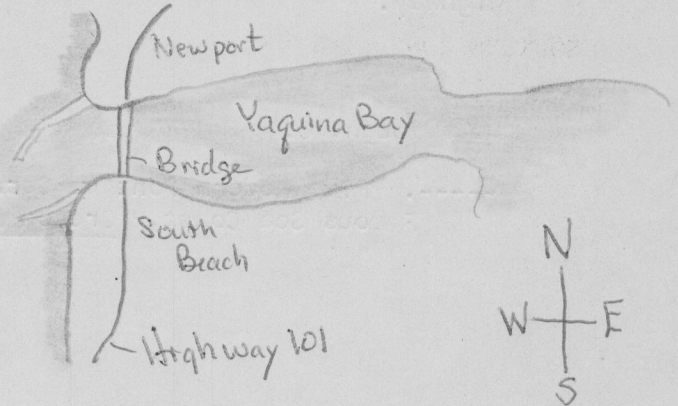 Newport
Yaquina Bay
Bridge
South
Beach
Highway 101
N
W E
S